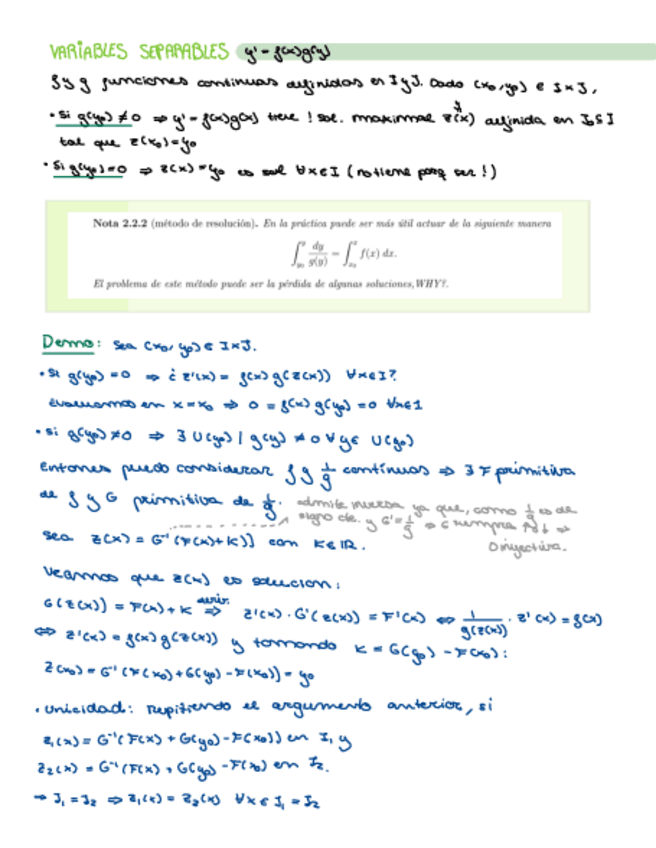 VARIABLES SEPARABLES y' = f(x)g(y)
f y g funciones continuas definidas en I y J. Dado (x₀,y₀) ∈ I×J,
• Si g(y₀) ≠ 0 ⇒ y' = f(x)g(x) tiene ! sol. maximal z(x) definida en I₀ ⊆ I
y
tal que z(x₀)=y₀
• Si g(y₀)=0 ⇒ z(x)=y₀ es sol ∀x∈I (no tiene porq ser !)
Nota 2.2.2 (método de resolución). En la práctica puede ser más útil actuar de la siguiente manera
∫_{y₀}^{y} dy/g(y) = ∫_{x₀}^{x} f(x) dx.
El problema de este método puede ser la pérdida de algunas soluciones,WHY?.
Demo: sea (x₀, y₀) ∈ I×J.
• Si g(y₀) =0 ⇒ ¿ z'(x) = f(x) g(z(x)) ∀x∈I?
Evaluamos en x=x₀ ⇒ 0 = f(x) g(y₀) =0 ∀x∈I
• si g(y₀)≠0 ⇒ ∃ U(y₀) | g(y) ≠ 0 ∀ y ∈ U(y₀)
Entonces puedo considerar f y 1/g continuas ⇒ ∃ F primitiva
de f y G primitiva de 1/g. admite inversa ya que, como 1/g es de
signo cte. y G'=1/g ⇒ G siempre ↑ ó ↓ ⇒
inyectiva.
sea z(x) = G⁻¹(F(x)+K)) con K∈ℝ.
Veamos que z(x) es solución:
G(z(x)) = F(x) + K ⇒ z'(x) · G'(z(x)) = F'(x) ⇔ 1/g(z(x)) · z'(x) = f(x)
deriv.
⇔ z'(x) = f(x) g(z(x)) y tomando K = G(y₀) - F(x₀):
z(x₀) = G⁻¹(F(x₀)+G(y₀) - F(x₀)) = y₀
• Unicidad: repitiendo el argumento anterior, si
z₁(x) = G⁻¹(F(x) + G(y₀) - F(x₀)) en I₁ y
z₂(x) = G⁻¹(F(x) + G(y₀) - F(x₀) en I₂.
⇒ I₁ = I₂ ⇒ z₁(x) = z₂(x) ∀x ∈ I₁ = I₂